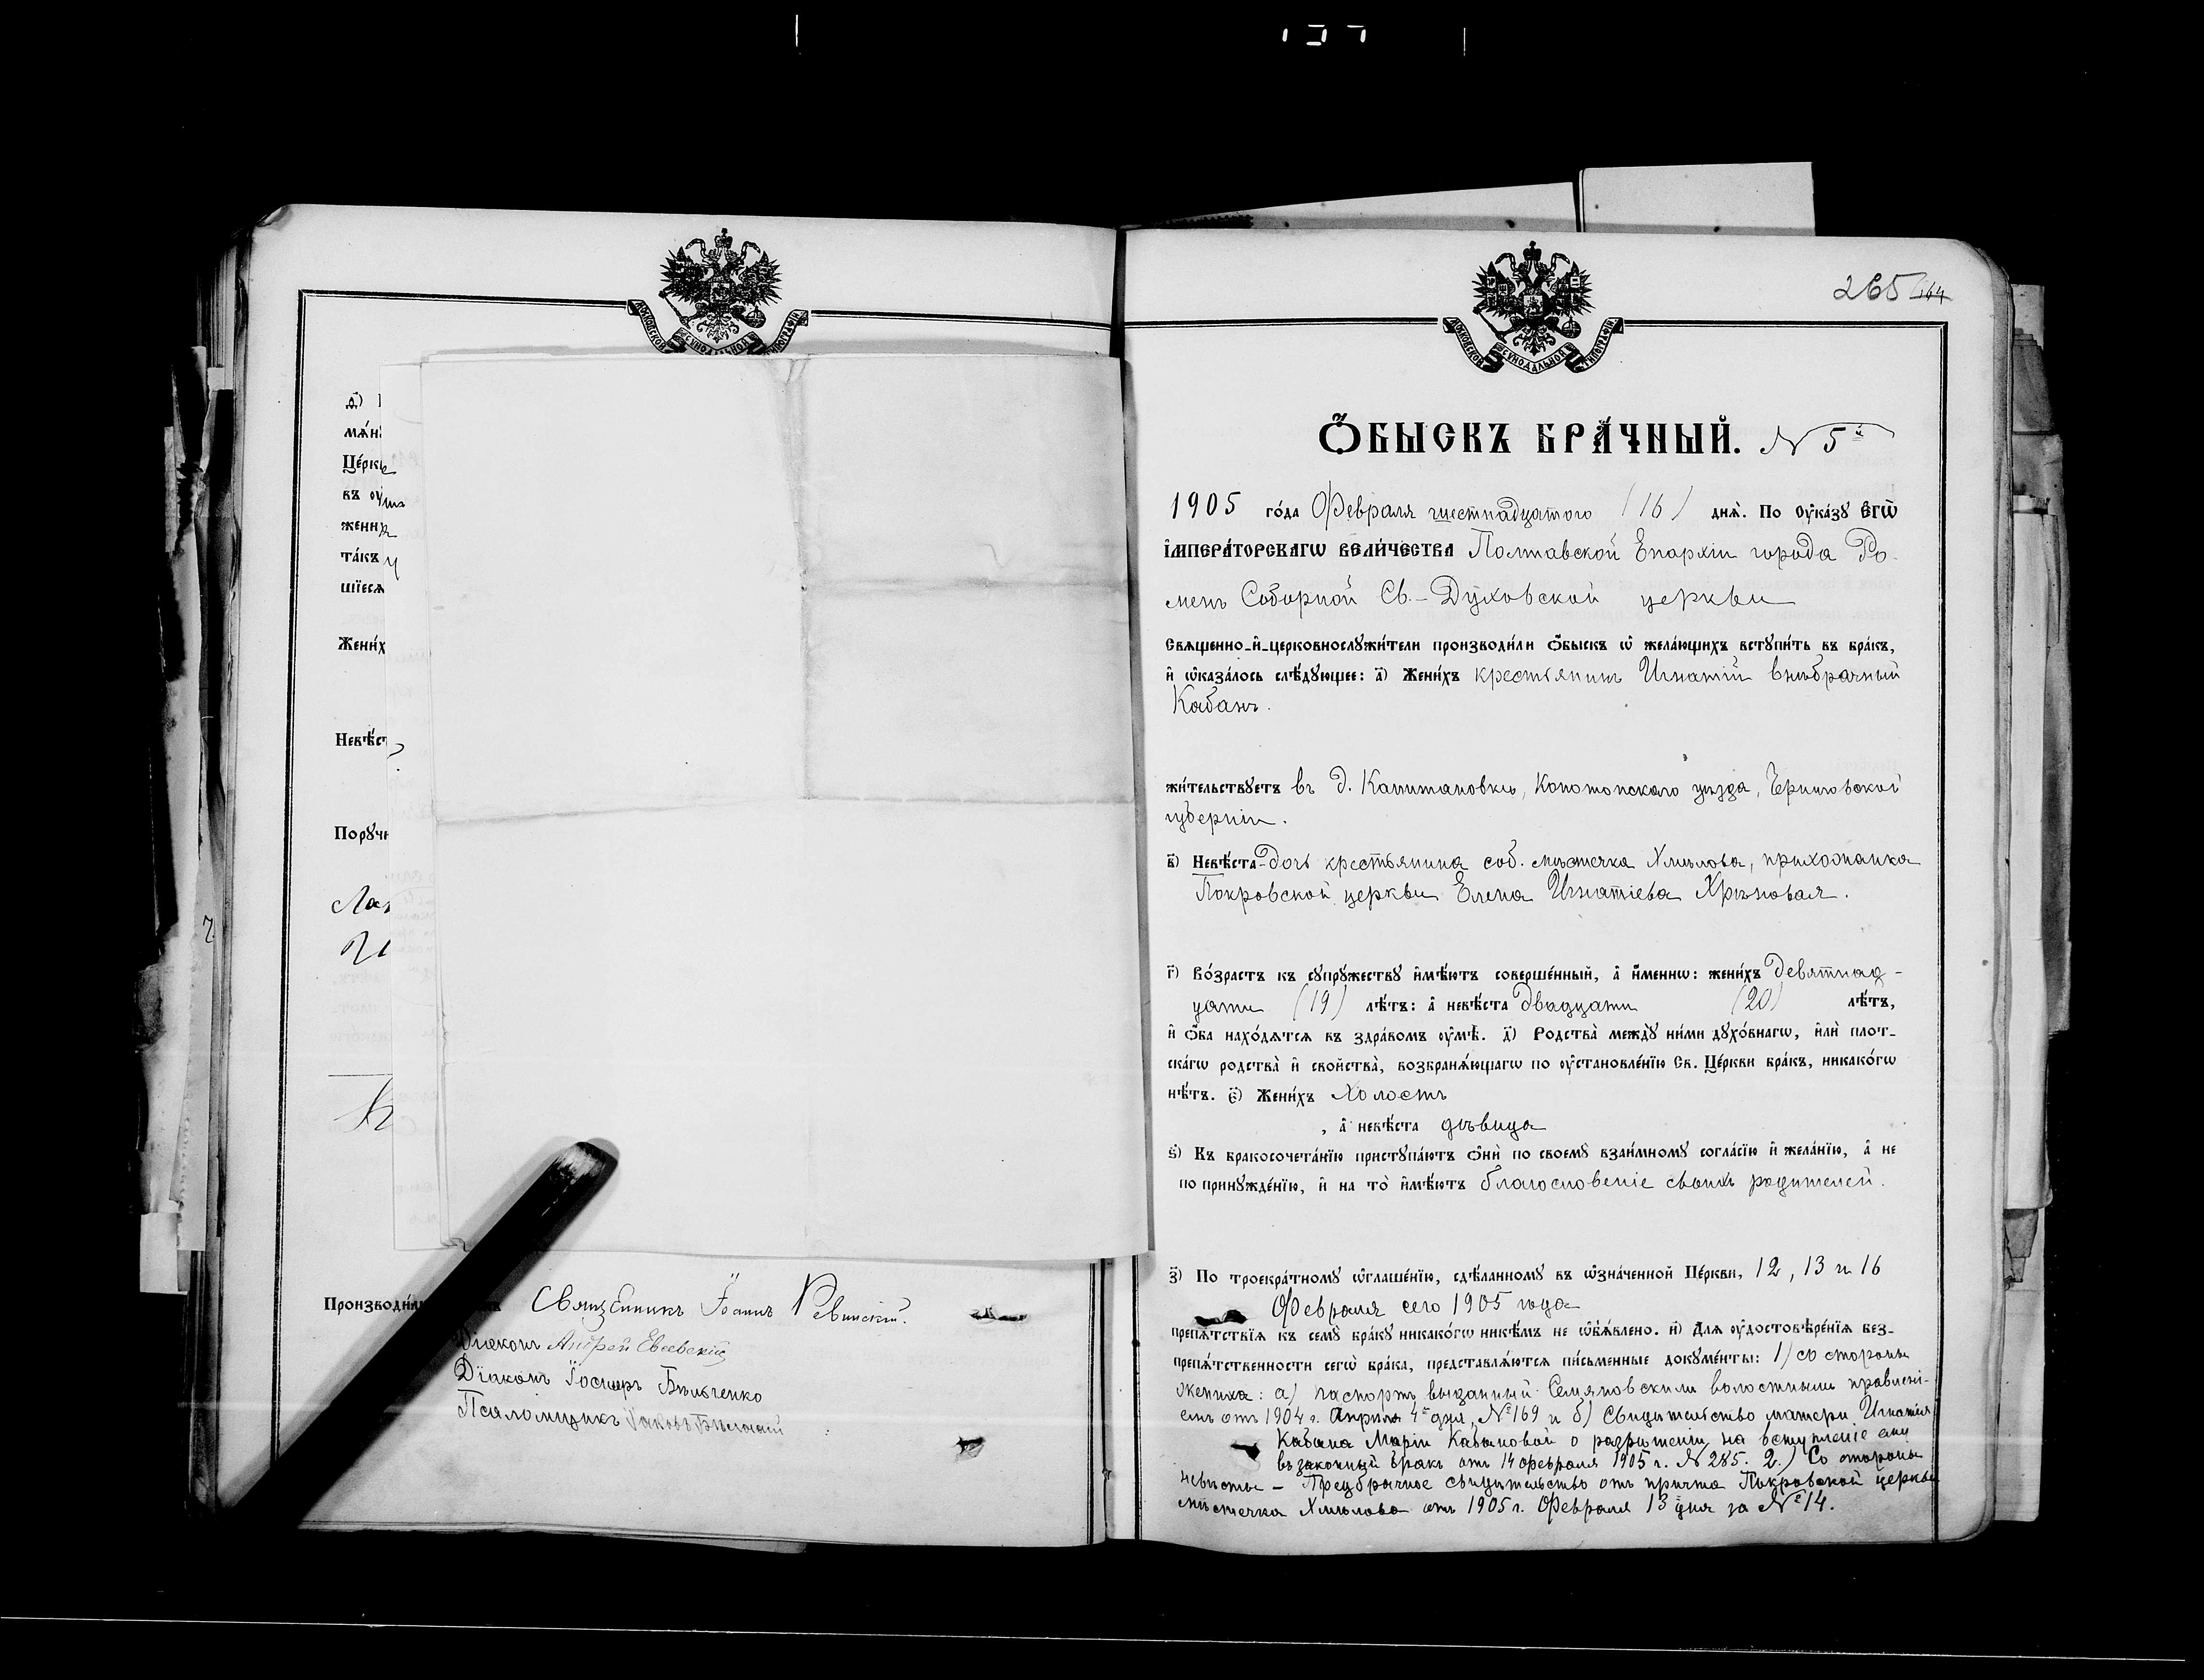 МОСКОВСКОЙ СУНОДАЛЬНОЙ ТИПОГРАФІИ
д҃)
мѧ́н
Це́рк
въ оу҆
жени
та́къ
шїесѧ
Жени́х
Невѣ́ст
Порꙋч
Производи́ли Священникъ Іоаннъ Ревинскій.
Діаконъ Андрей Евсевскій
Діаконъ Іосифъ Бѣльченко
Псаломщикъ Іаковъ
265
МОСКОВСКОЙ СУНОДАЛЬНОЙ ТИПОГРАФІИ
Ѻ҆БЫСКЪ БРА́ЧНЫЙ. № 5й
1905 го́да Февраля шестнадцатого (16) днѧ̀. По оу҆ка́зꙋ Є҆ГѠ̀
І҆МПЕРА́ТОРСКАГѠ ВЕЛИ́ЧЕСТВА Полтавской Епархіи города Ро-
менъ Соборной Св.-Духовской церкви
Свѧщенно-и҆-церковнослꙋжи́тели производи́ли ѻ҆́быскъ ѡ҆ жела́ющихъ встꙋпи́ть въ бра́къ,
и҆ ѡ҆каза́лось слѣ́дꙋющее: а҃) Жени́хъ крестьянинъ Игнатій внѣбрачный
Кабанъ.
жи́тельствꙋетъ въ д. Капитановкѣ, Конотопскаго уѣзда, Черниговской
губерніи.
в҃) Невѣ́ста - Дочь крестьянина соб. мѣстечка Хмѣлова, прихожанка
Покровской церкви Елена Игнатіева Хрѣновая.
г҃) Во́зрастъ къ сꙋпрꙋ́жествꙋ и҆мѣ́ютъ соверше́нный, а҆ и҆́меннѡ: жени́хъ девятнад-
цати (19) лѣ́тъ: а҆ невѣ́ста двадцати (20) лѣ́тъ,
и҆ ѻ҆́ба нахо́дѧтсѧ въ здра́вомъ оу҆мѣ̀. д҃) Родства̀ междꙋ̀ ни́ми дꙋхо́внагѡ, и҆лѝ плот-
ска́гѡ родства̀ и҆ свойства̀, возбранѧ́ющагѡ по оу҆становле́нїю Св. Це́ркви бра́къ, никако́гѡ
нѣ́тъ. є҃) Жени́хъ холостъ
, а҆ невѣ́ста дѣвица
ѕ҃) Къ бракосочета́нїю пристꙋпа́ютъ ѻ҆нѝ по своемꙋ̀ взаи́мномꙋ согла́сїю и҆ жела́нїю, а҆ не
по принꙋжде́нїю, и҆ на то̀ и҆мѣ́ютъ благословеніе своихъ родителей.
з҃) По троекра́тномꙋ ѡ҆глаше́нїю, сдѣ́ланномꙋ въ ѡ҆зна́ченной Це́ркви, 12, 13 и 16
Февраля сего 1905 года
препѧ́тствїѧ къ семꙋ̀ бра́кꙋ никако́гѡ никѣ́мъ не ѡ҆б̾ѧ́влено. и҃) Длѧ оу҆достовѣ́ренїѧ без-
препѧ́тственности сегѡ̀ бра́ка, представлѧ́ютсѧ пи́сьменные докꙋме́нты: 1) со стороны
жениха: а) паспортъ выданный Семяновскимъ волостнымъ правлені-
емъ отъ 1904 г. Апрѣля 4го дня, №169 и б) Свидѣтельство матери Игнатія
Кабана Маріи Кабановой о разрѣшеніи на вступленіе ему
въ законный бракъ отъ 14 февраля 1905 г. № 285. 2) Со стороны
невѣсты - Предбрачное свидѣтельство отъ причта Покровской церкви
мѣстечка Хмѣлова отъ 1905 г. Февраля 13 дня за №14.